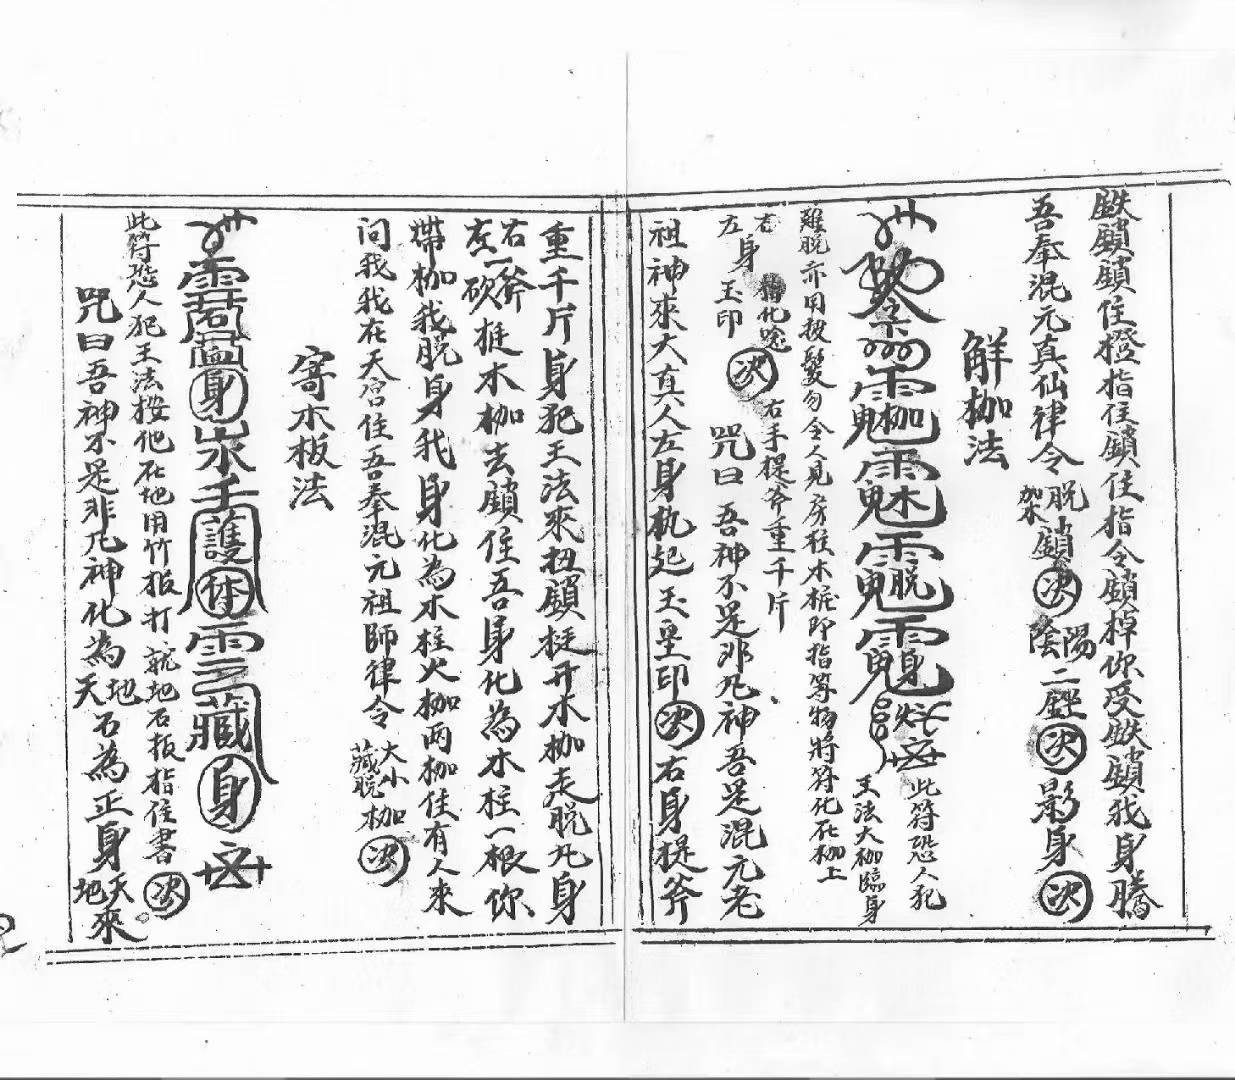 鉄鎖鎖住橙指住鎖住指令鎖掉你受鉄鎖我身騰
吾奉混元真仙律令脱枷木鎖決陰陽二經決影身決
解枷法
枷木脱身
此符恐人犯
王法大枷臨身
難脱亦用披髮勿令人見房柱木樁即指等物將符化在枷上
右手提斧重千斤
左身玉印決咒曰吾神不是邪凡神吾是混元老
祖神來大真人左身执起玉皇印決右身提斧
重千斤身犯王法來扭鎖挺开木枷走脱凡身
右一斧左一砍挺木枷去鎖住吾身化為木柱一根你
帶枷我脱身我身化為木柱火枷兩枷住有人來
问我我在天宫住吾奉混元祖師律令大小枷藏脱決
寄木板法
身水王護体雲藏身
此符恐人犯王法按他在地用竹板打就地石板指住書決
咒曰吾神不是非凡神化為天地石為正身天地來